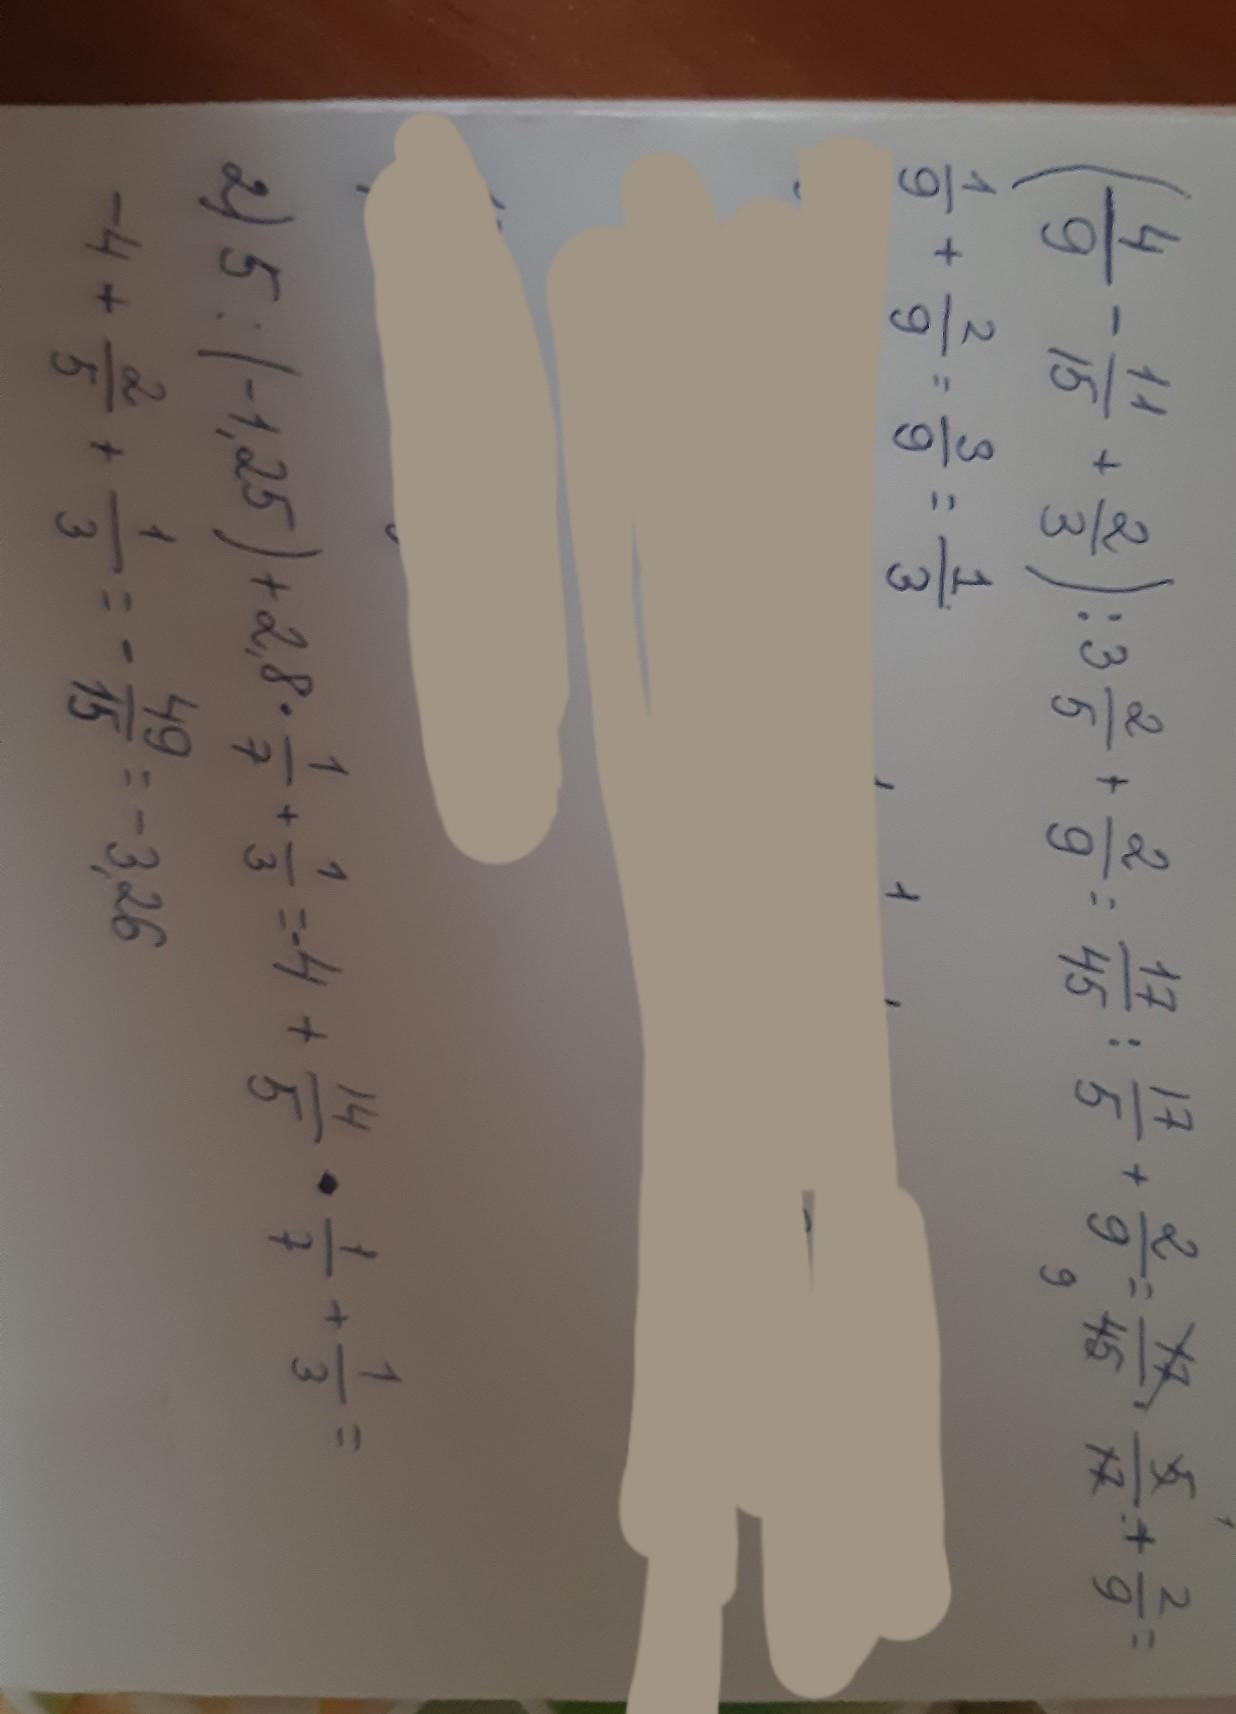 (4/9 - 11/15 + 2/3) : 3 2/5 + 2/9 = 17/45 : 17/5 + 2/9 = 17/45 · 5/17 + 2/9 =
1/9 + 2/9 = 3/9 = 1/3
2) 5 : (-1,25) + 2,8 · 1/7 + 1/3 = -4 + 14/5 · 1/7 + 1/3 =
-4 + 2/5 + 1/3 = - 49/15 = -3,26